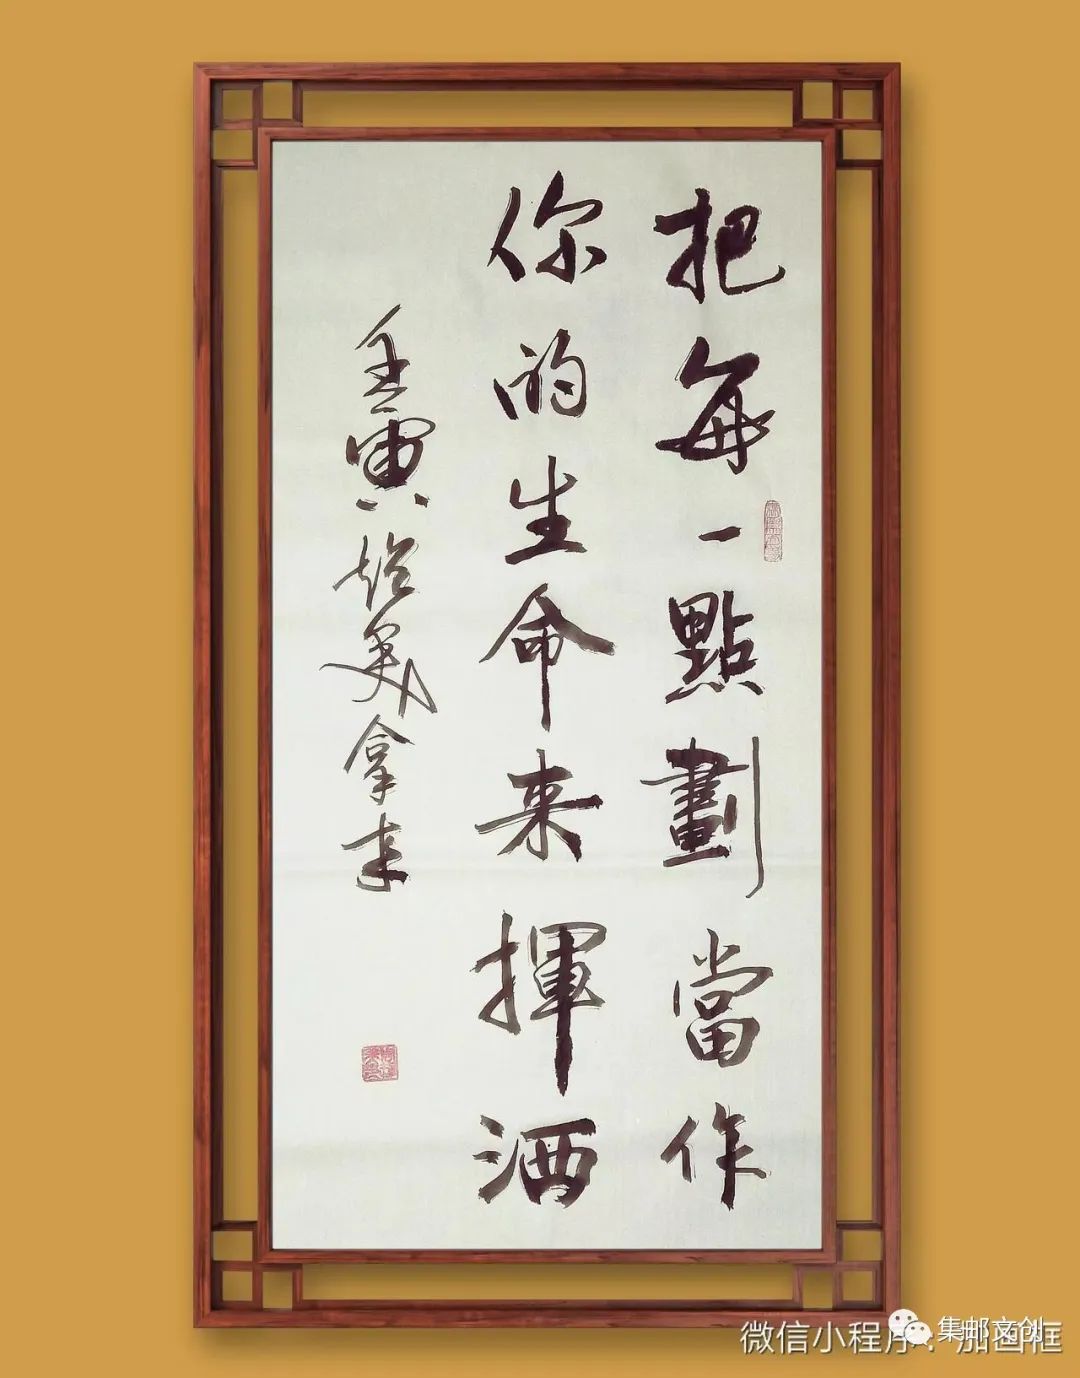 把每一點劃當作
你的生命来揮洒
壬寅
微信小程序：加画框
集邮文创